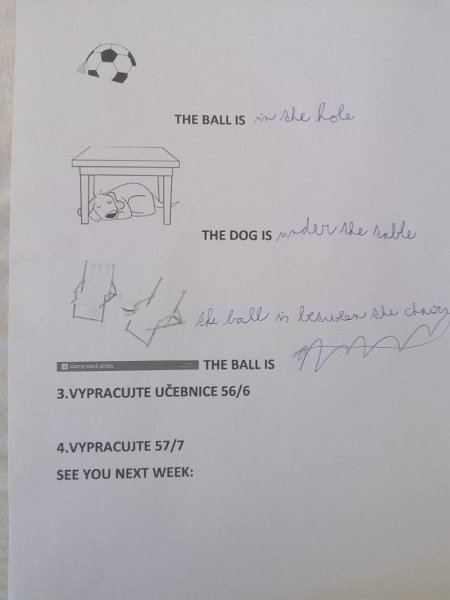 THE BALL IS in the hole
THE DOG IS under the table
the ball is between the chairs
alamy stock photo
THE BALL IS
3.VYPRACUJTE UČEBNICE 56/6
4.VYPRACUJTE 57/7
SEE YOU NEXT WEEK: